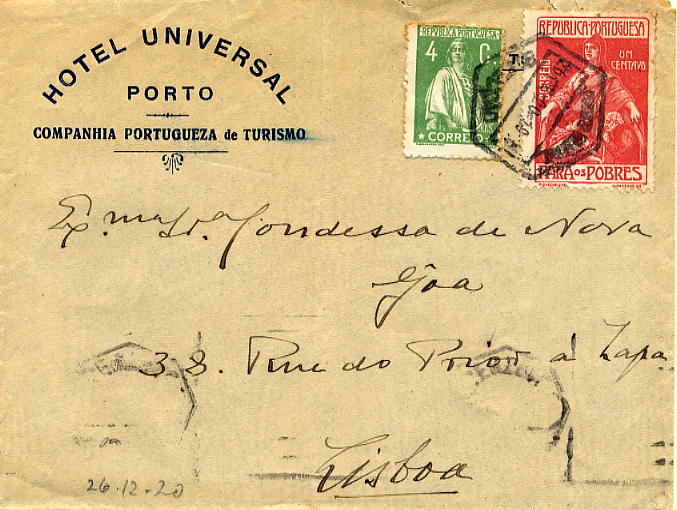 HOTEL UNIVERSAL
PORTO
COMPANHIA PORTUGUEZA de TURISMO
REPUBLICA PORTUGUESA
4 C.
CORREIO
REPUBLICA PORTUGUESA
CORREIO
UM CENTAVO
PARA OS POBRES
Ex.ma Sr.a Condessa de Nova
Goa
38. Rua do Prior á Lapa
Lisboa
26.12.20